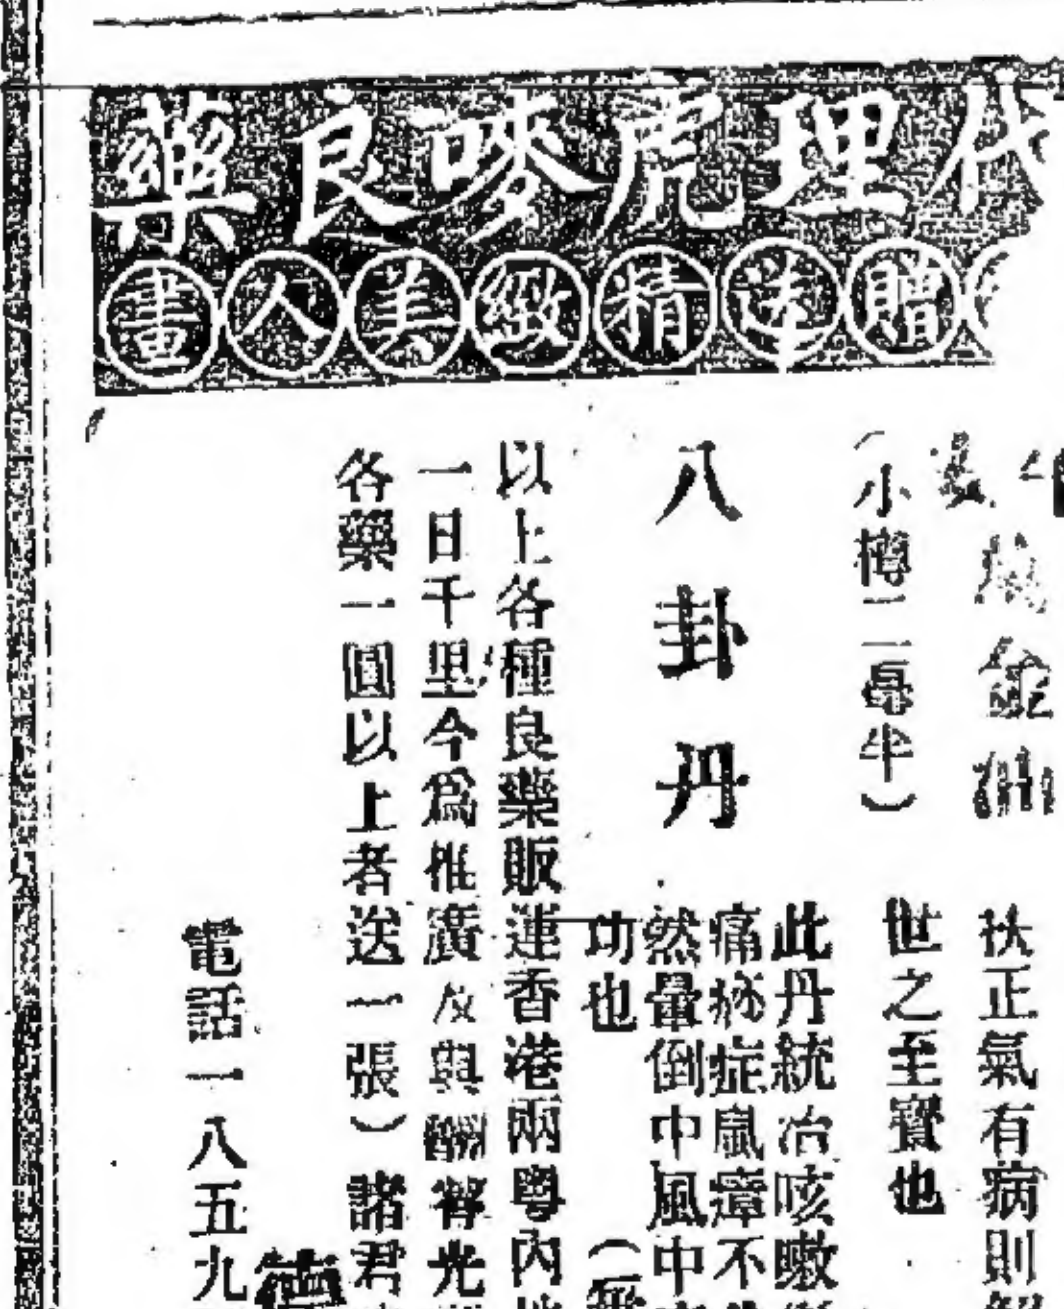 代理虎嘜良藥
贈送精緻美人畫
金油
扶正氣有病則
世之至寶也
(小樽二毫半)
八卦丹
此丹統治咳嗽
痛痧症嵐瘴不
然暈倒中風中
功也
以上各種良藥販運香港兩粵內地
一日千里今爲推廣及與酬答光
各藥一圓以上者送一張)諸君
電話一八五九